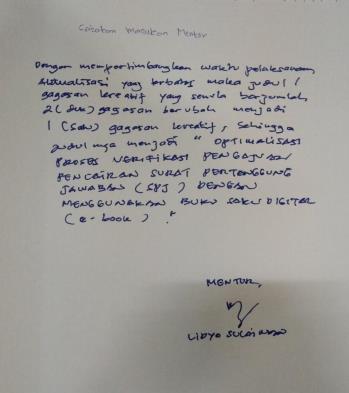 Catatan Masukan Mentor
Dengan mempertimbangkan waktu pelaksanaan
aktualisasi yang terbatas maka judul /
gagasan kreatif yang semula berjumlah
2 (dua) gagasan berubah menjadi
1 (satu) gagasan kreatif, sehingga
judulnya menjadi " OPTIMALISASI
PROSES VERIFIKASI PENGAJUAN
PENCAIRAN SURAT PERTANGGUNG
JAWABAN (SPJ) DENGAN
MENGGUNAKAN BUKU SAKU DIGITAL
(e-book) ".
MENTOR,